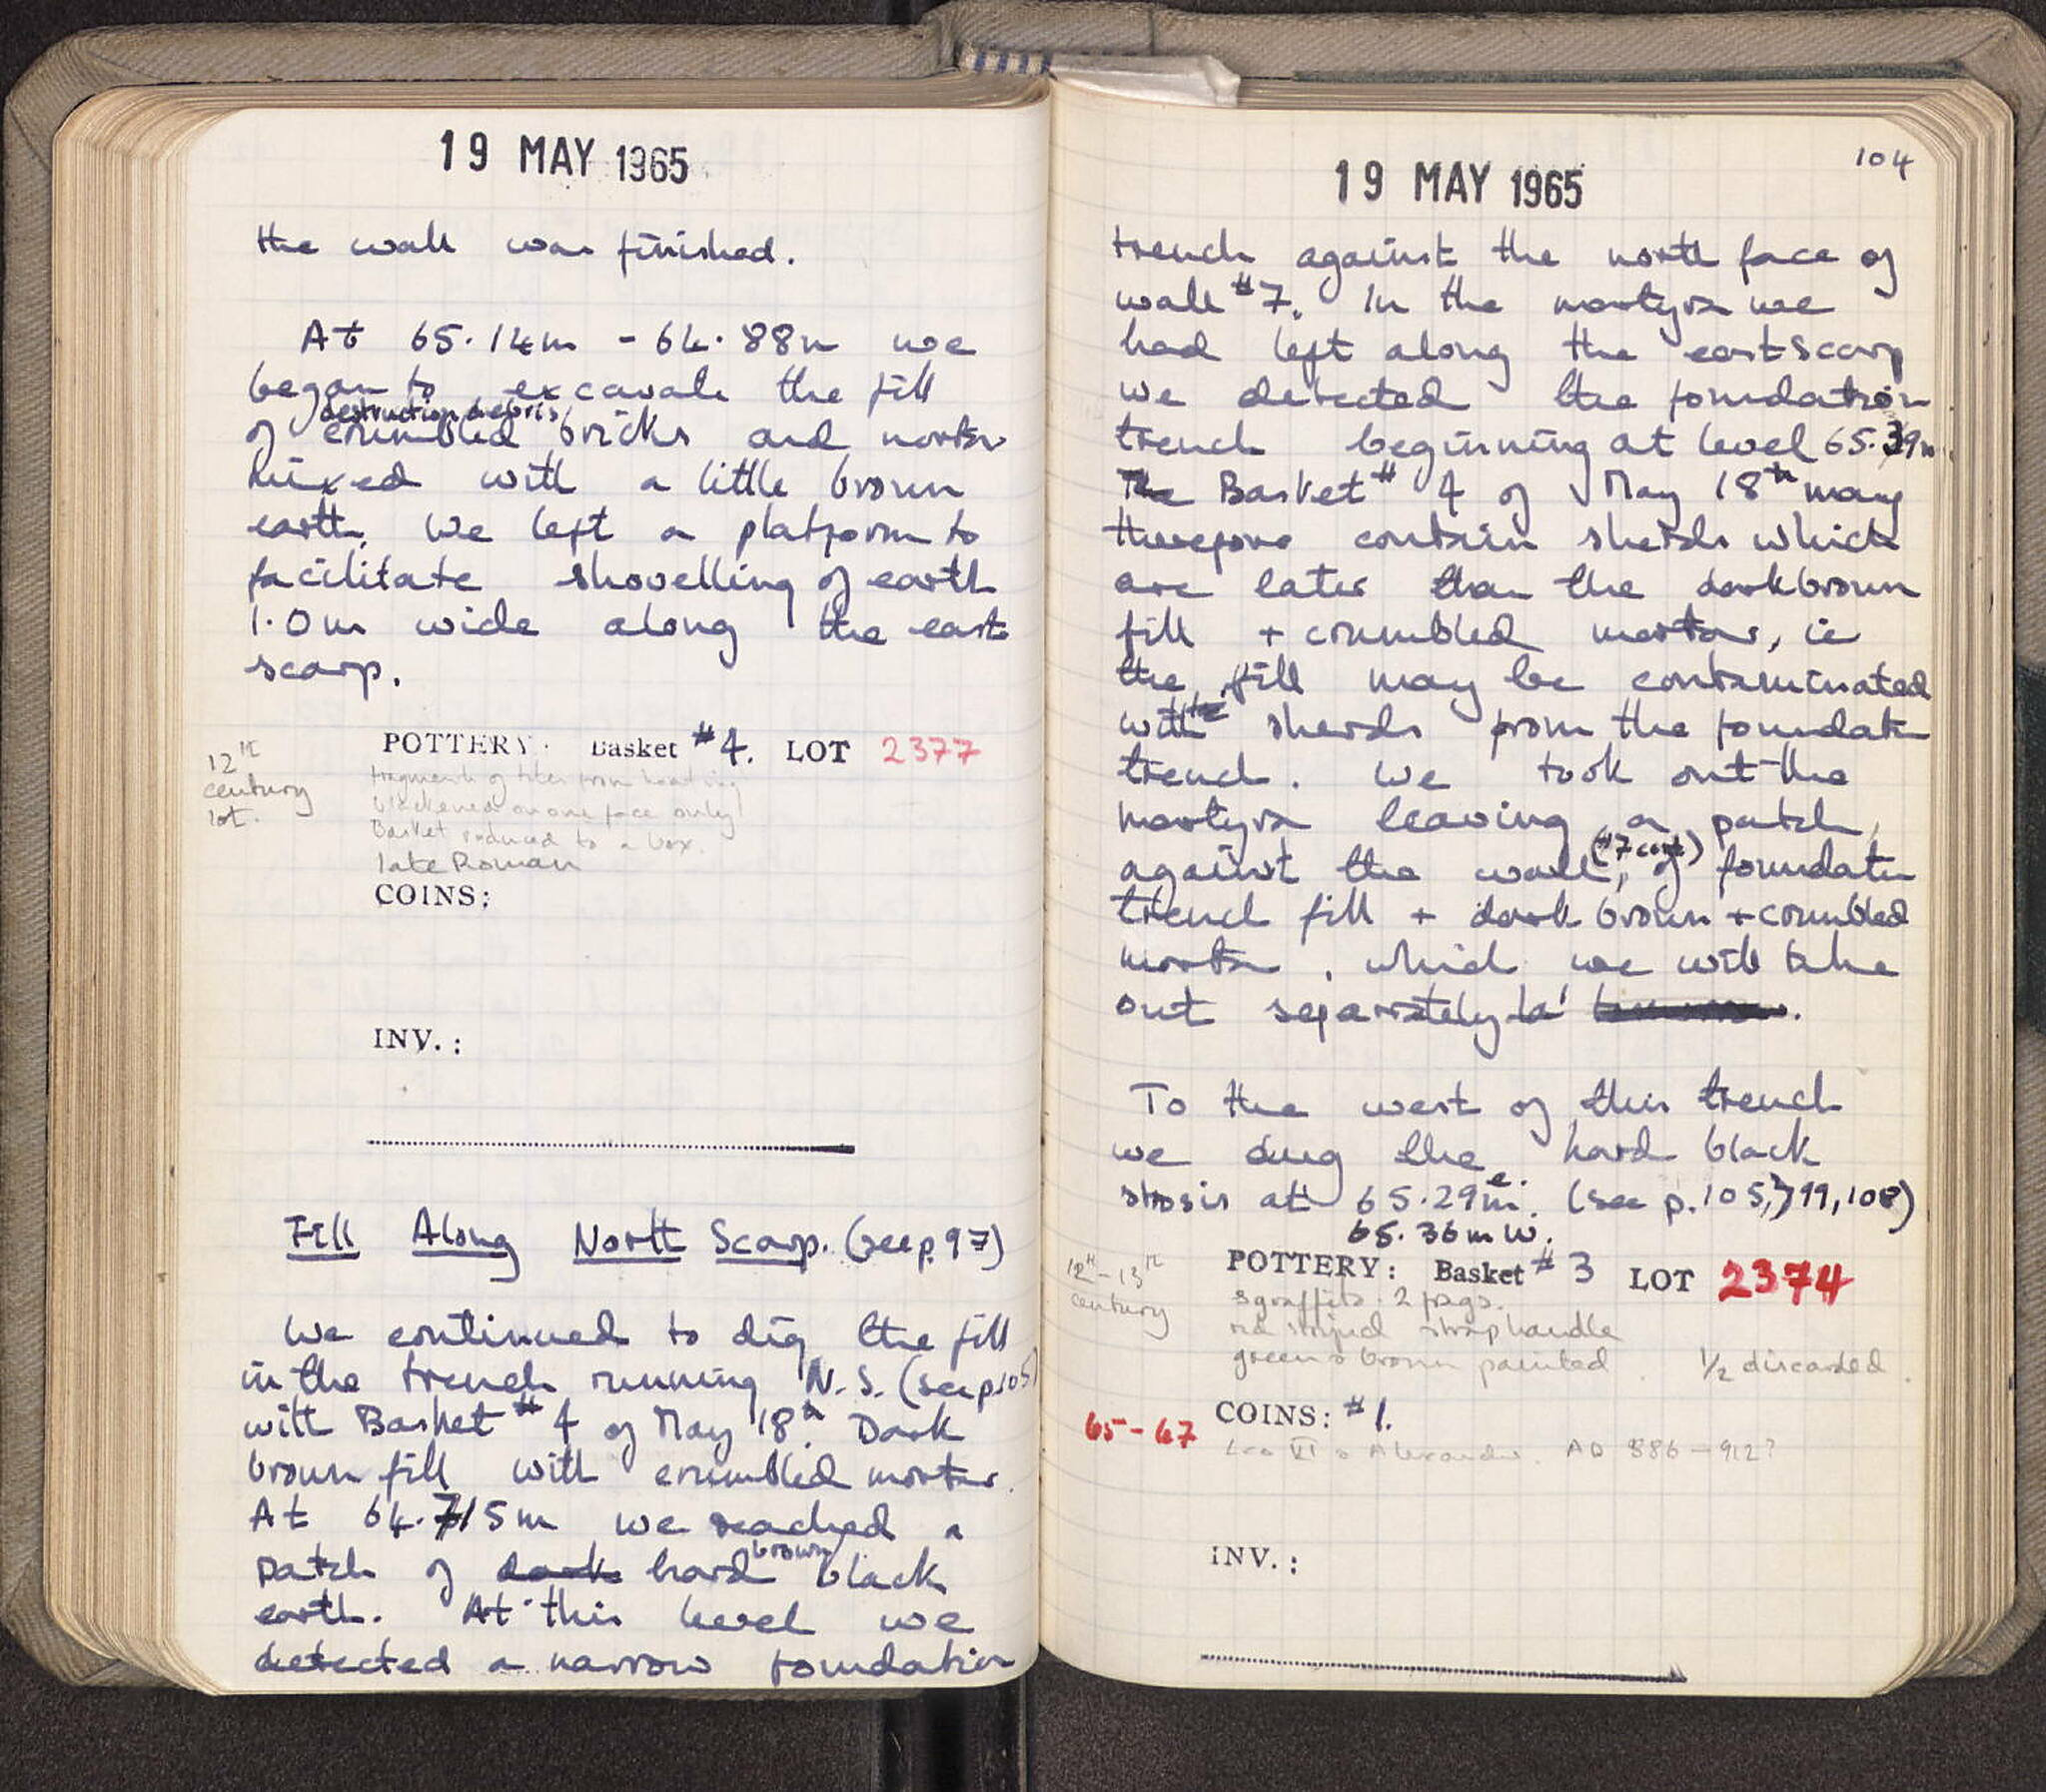 19 MAY 1965
the wall was finished.
At 65.14m - 64.88m we
began to excavate the fill
destruction debris
of crumbled bricks and mortar
mixed with a little brown
earth. We left a platform to
facilitate shovelling of earth
1.0m wide along the east
scarp.
12th
century
lot.
POTTERY: Basket #4. LOT 2377
fragments of tiles from heating
blackened on one face only
Basket reduced to a box.
late Roman
COINS:
INV.:
Fill Along North Scarp. (see p. 97)
We continued to dig the fill
in the trench running N.S. (see p. 105)
with Basket #4 of May 18th. Dark
brown fill with crumbled mortar.
At 64.715m we reached a
brown
patch of dark hard black
earth. At this level we
detected a narrow foundation
104
19 MAY 1965
trench against the north face of
wall #7. In the martyra we
had left along the east scarp
we detected the foundation
trench beginning at level 65.39m
The Basket #4 of May 18th may
therefore contain sherds which
are later than the dark brown
fill + crumbled mortar, ie
the fill may be contaminated
with sherds from the foundatn
trench. We took out the
martyra leaving a patch,
(#7 cont)
against the wall, of foundatn
trench fill + dark brown + crumbled
mortar, which we will take
out separately
To the west of this trench
we dug the hard black
stosis at 65.29m e. (see p. 105, 99, 108)
65.36m W.
12th-13th
century
POTTERY: Basket #3 LOT 2374
sgraffito. 2 frags.
red striped strap handle
green & brown painted. 1/2 discarded.
65-67
COINS: #1.
Leo VI & Alexander. AD 886-912?
INV.: